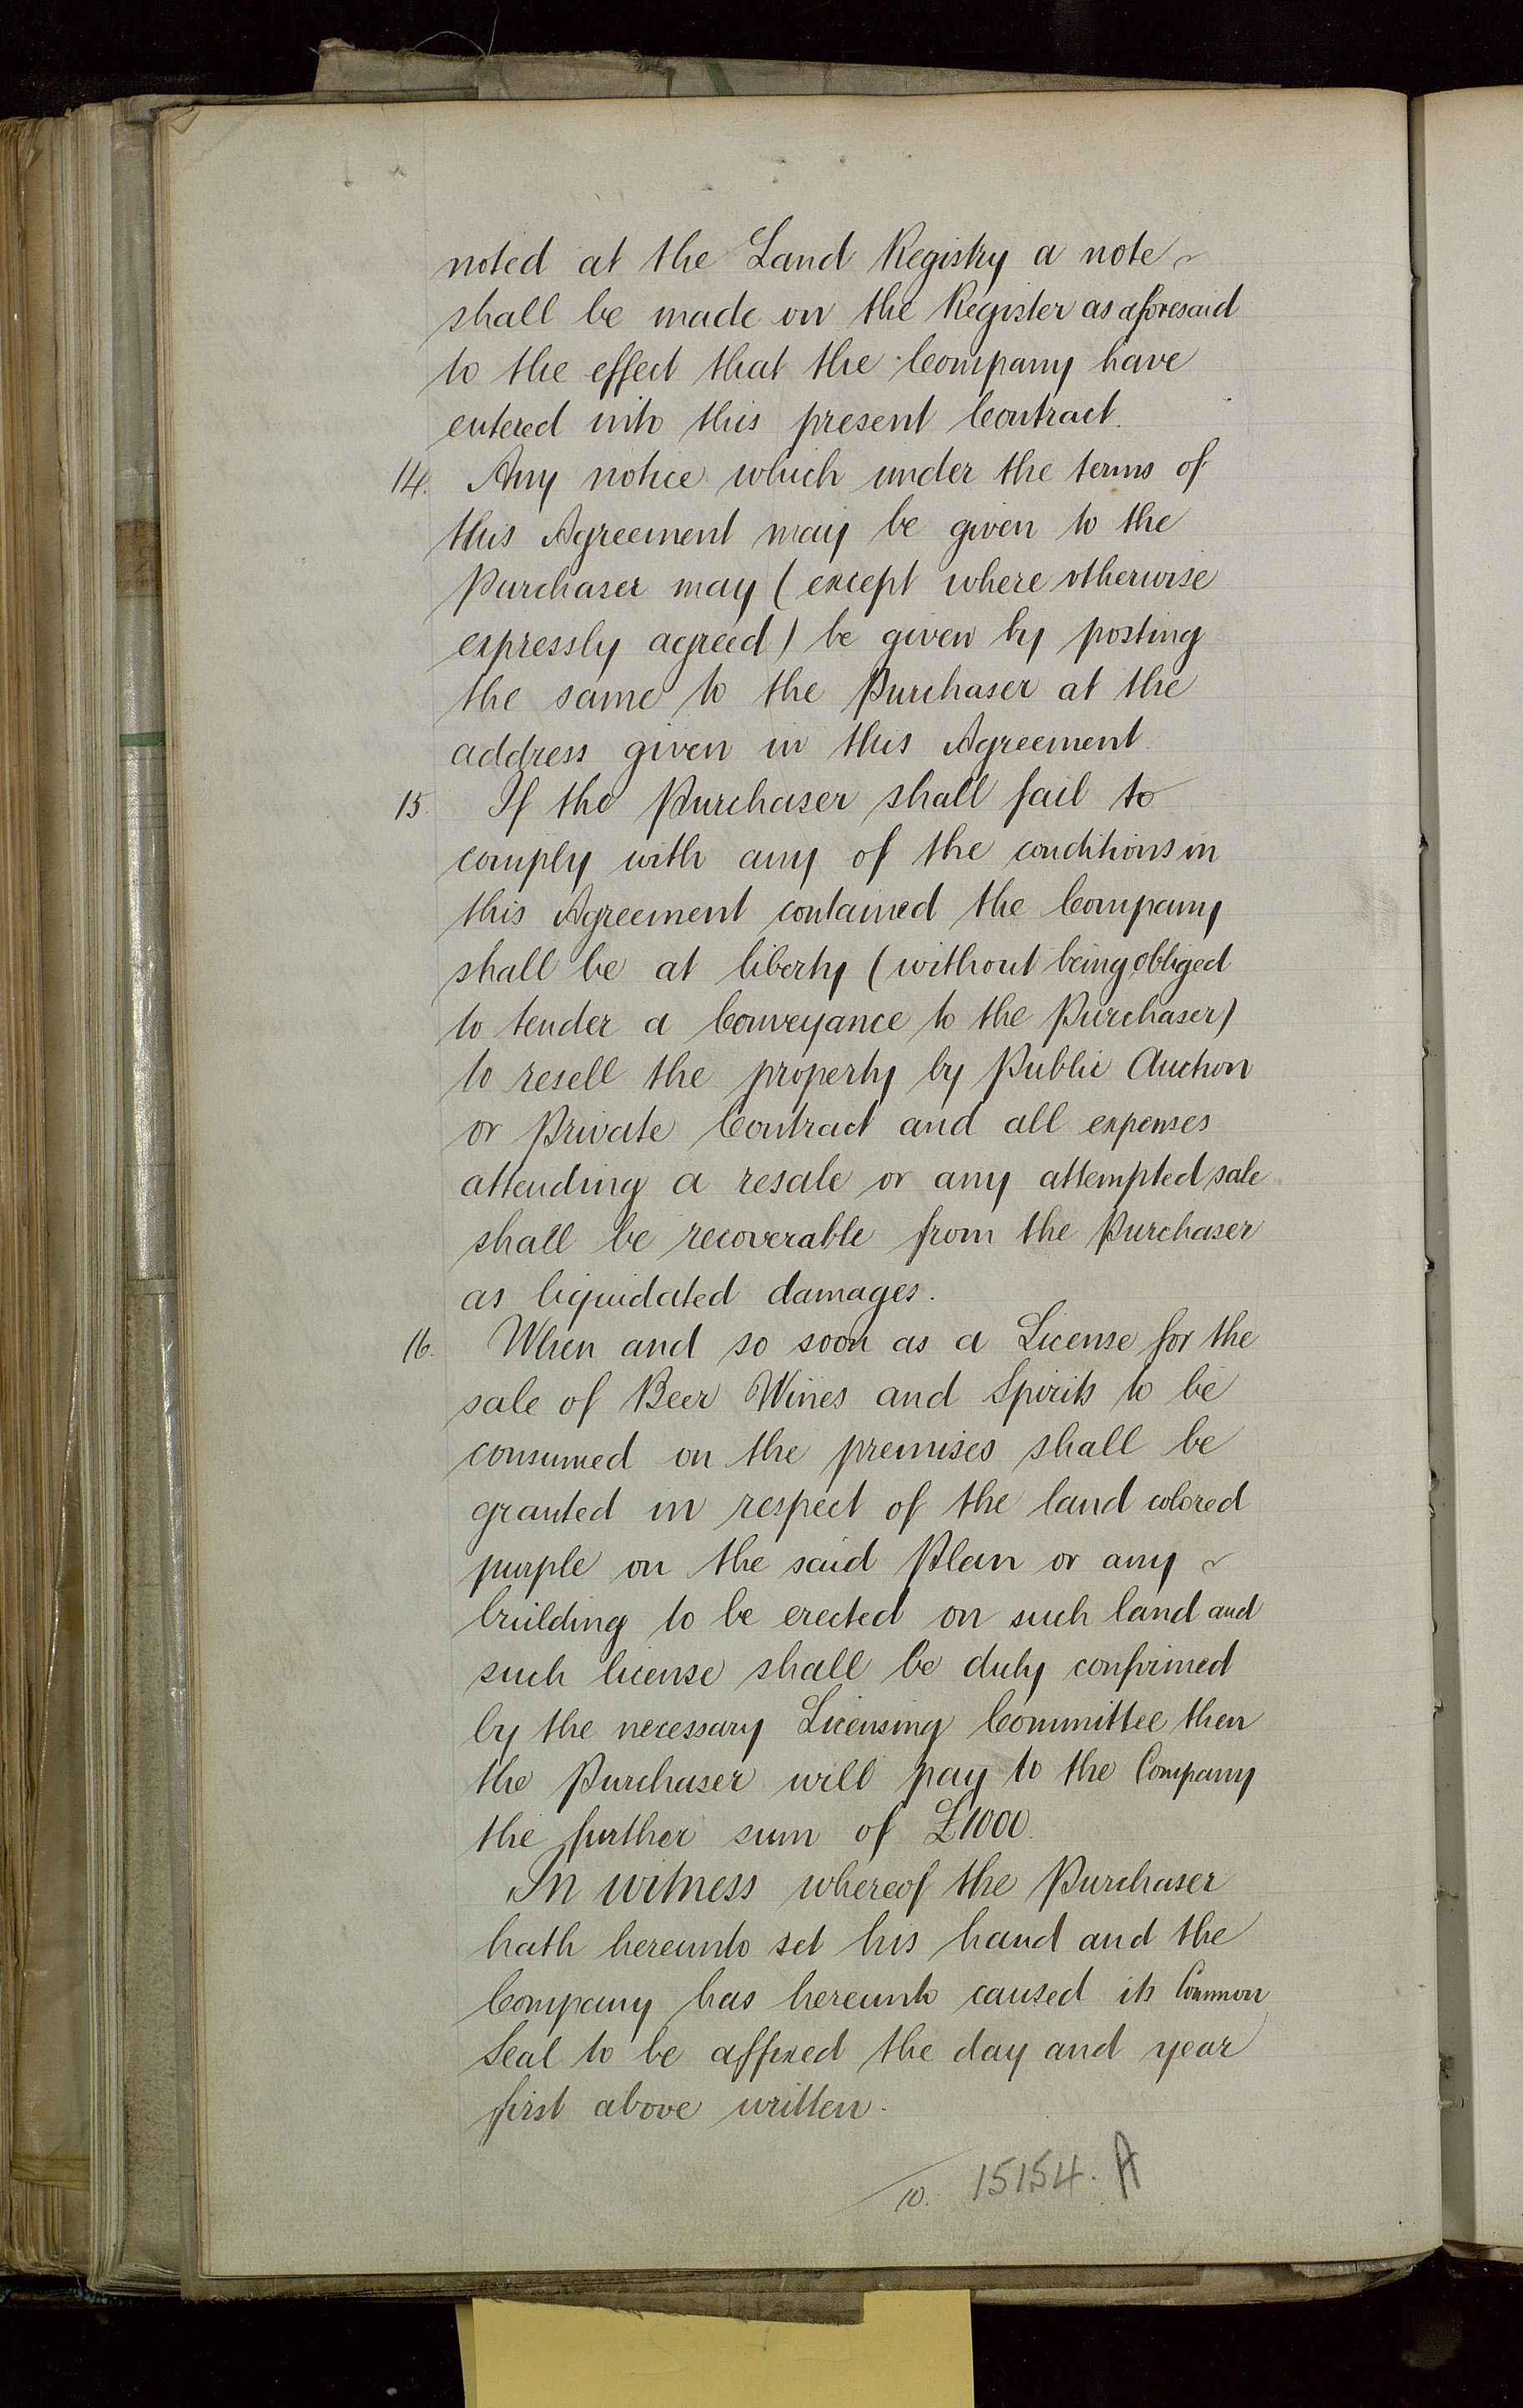 noted at the Land Registry a note
shall be made on the Register as aforesaid
to the effect that the Company have
entered into this present Contract.
14. Any notice which under the terms of
this Agreement may be given to the
Purchaser may (except where otherwise
expressly agreed) be given by posting
the same to the Purchaser at the
address given in this Agreement.
15. If the Purchaser shall fail to
comply with any of the conditions in
this Agreement contained the Company
shall be at liberty (without being obliged
to tender a Conveyance to the Purchaser)
to resell the property by Public Auction
or Private Contract and all expenses
attending a resale or any attempted sale
shall be recoverable from the Purchaser
as liquidated damages.
16. When and so soon as a License for the
sale of Beer Wines and Spirits to be
consumed on the premises shall be
granted in respect of the land colored
purple on the said Plan or any
building to be erected on such land and
such license shall be duly confirmed
by the necessary Licensing Committee then
the Purchaser will pay to the Company
the further sum of £1000.
In witness whereof the Purchaser
hath hereunto set his hand and the
Company has hereunto caused its Common
Seal to be affixed the day and year
first above written.
10. 15154. A